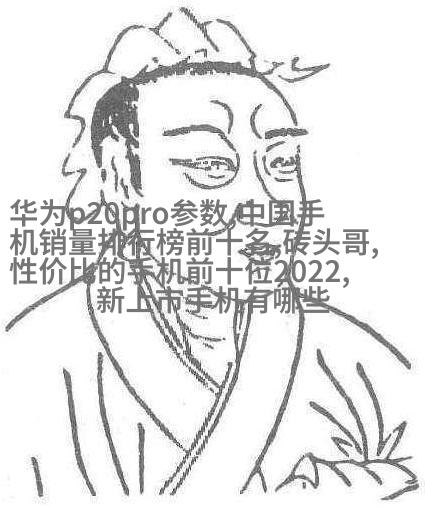 华为p20pro参数,中国手
机销量排行榜前十名,砖头哥,
性价比的手机前十位2022,
新上市手机有哪些